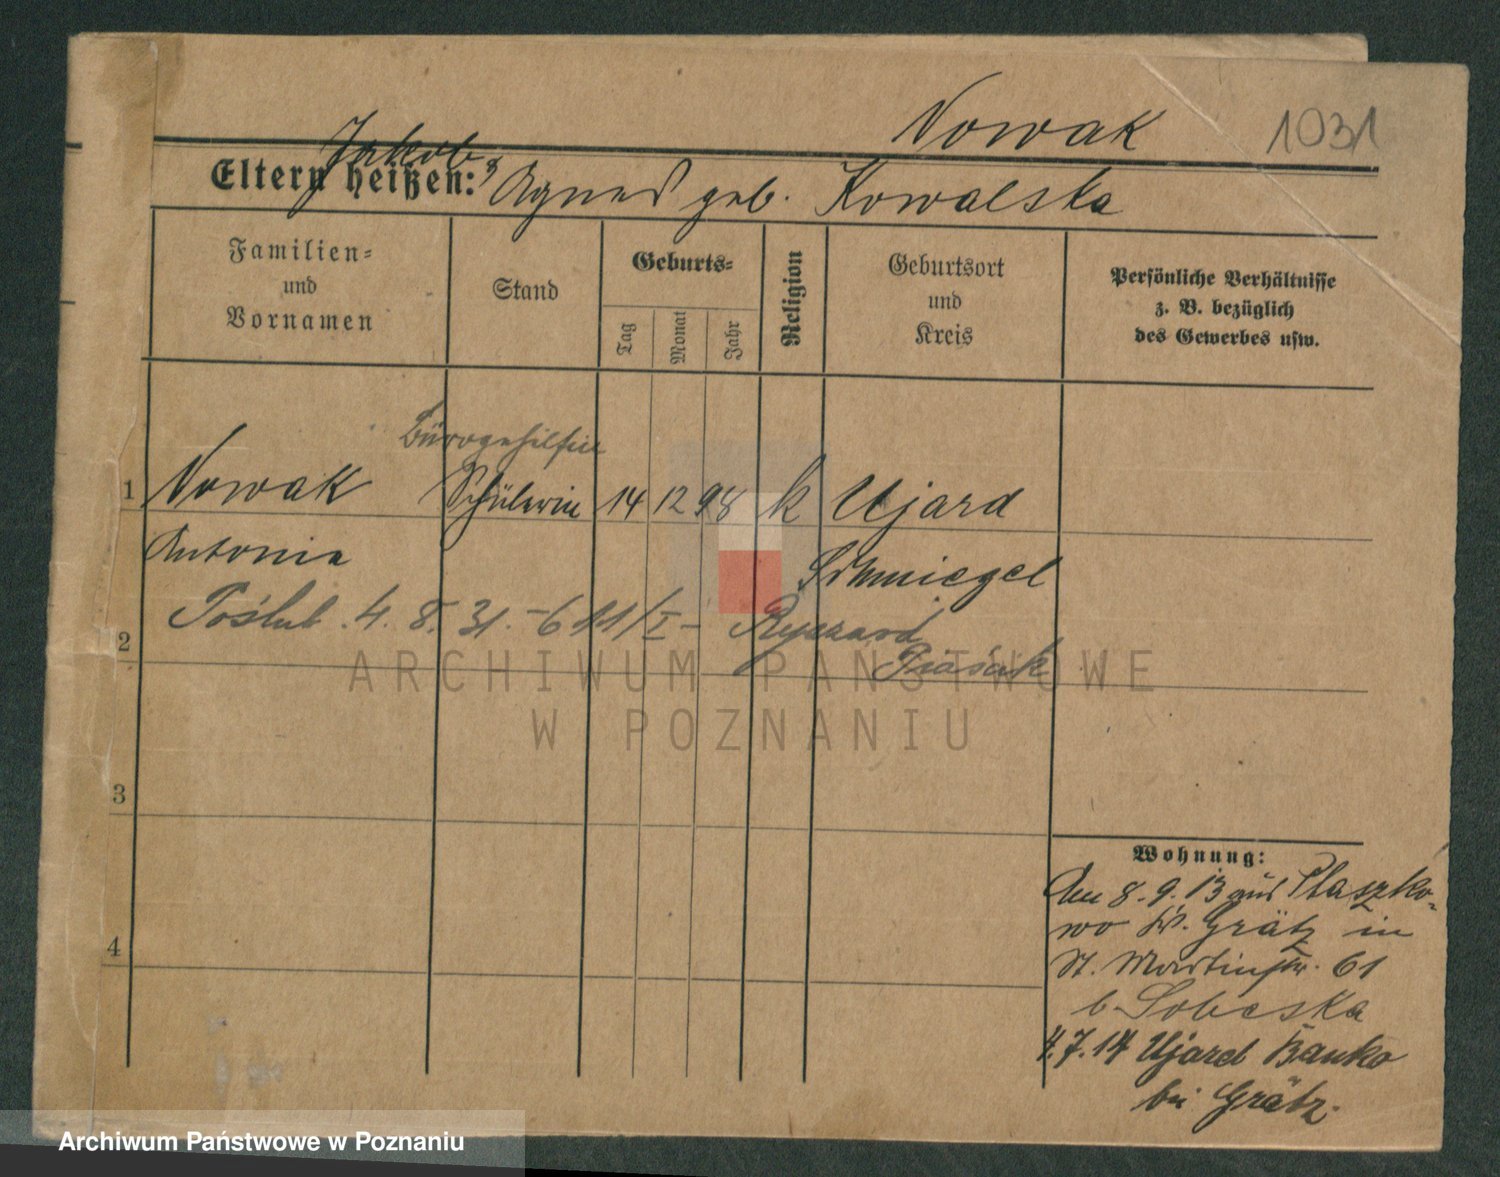 Nowak 1031
Jakob
Eltern heißen: & Agnes geb. Kowalska
Familien-
und
Vornamen
Stand
Geburts-
Tag
Monat
Jahr
Religion
Geburtsort
und
Kreis
Persönliche Verhältnisse
z. B. bezüglich
des Gewerbes usw.
Bürogehilfin
1 Nowak Schülerin 14 12 98 k Ujard
Antonia Schmiegel
2 Poślub. 4. 8. 31. - 611/I - Ryszard
Piasak
ARCHIWUM PAŃSTWOWE
W POZNANIU
3
4
Wohnung:
Am 8.9.13 aus Ptaszko-
wo Kr. Grätz in
St. Martinstr. 61
b. Sobeska
4.7.14 Ujard Hauko
bei Grätz.
Archiwum Państwowe w Poznaniu